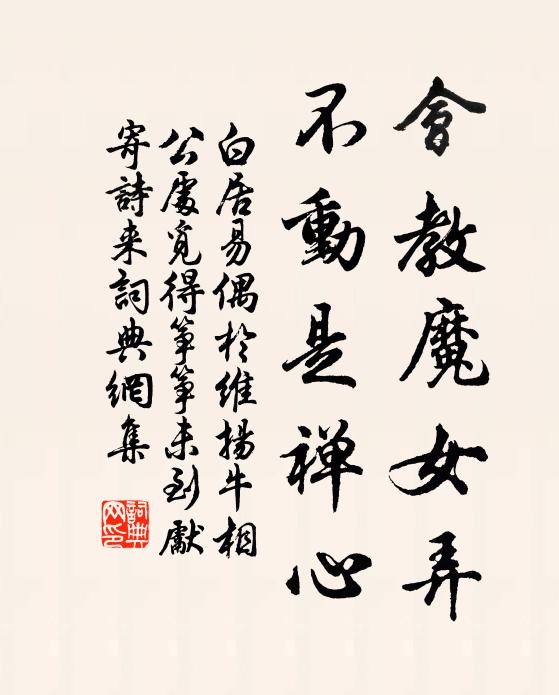 會教魔女弄
不動是禅心
白居易偶於維揚牛相
公處覓得箏箏未到獻
寄詩来詞典網集
詞典
网印